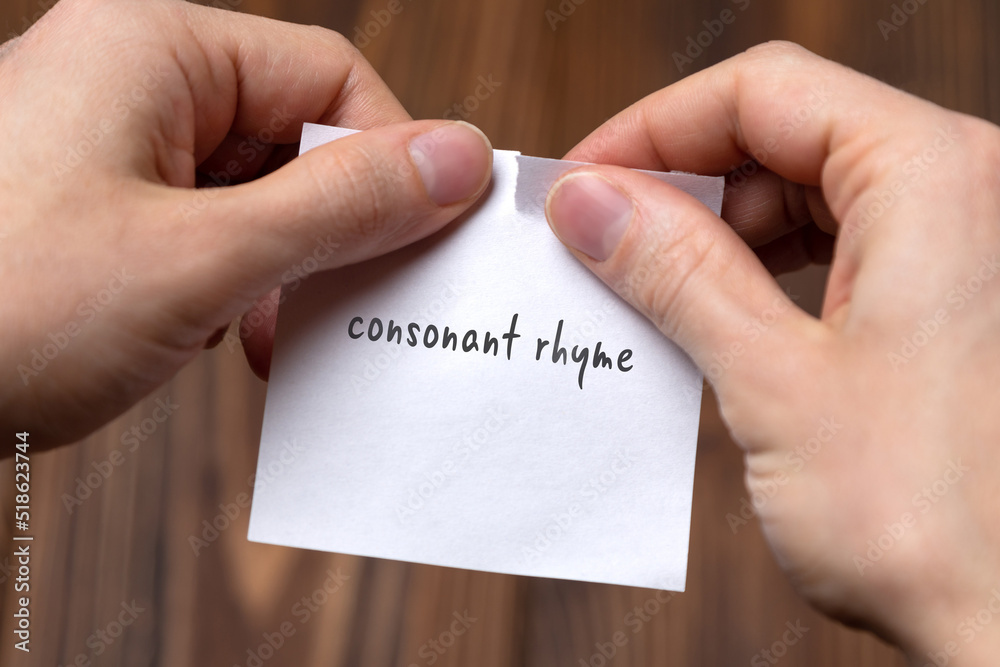 consonant rhyme
Adobe Stock | #518623744